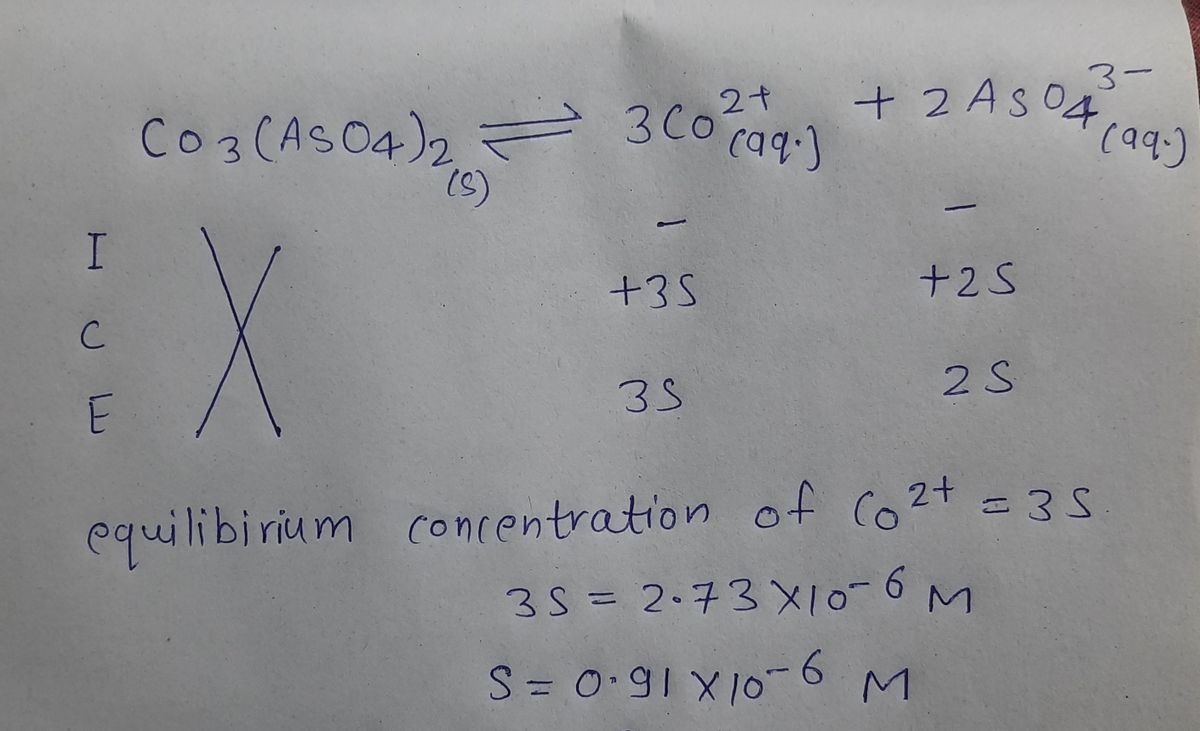 Co3(AsO4)2(s) ⇌ 3Co2+(aq.) + 2AsO43-(aq.)
I - -
C +3S +2S
E 3S 2S
equilibirium concentration of Co2+ = 3S.
3S = 2.73 X10-6 M
S = 0.91 X10-6 M